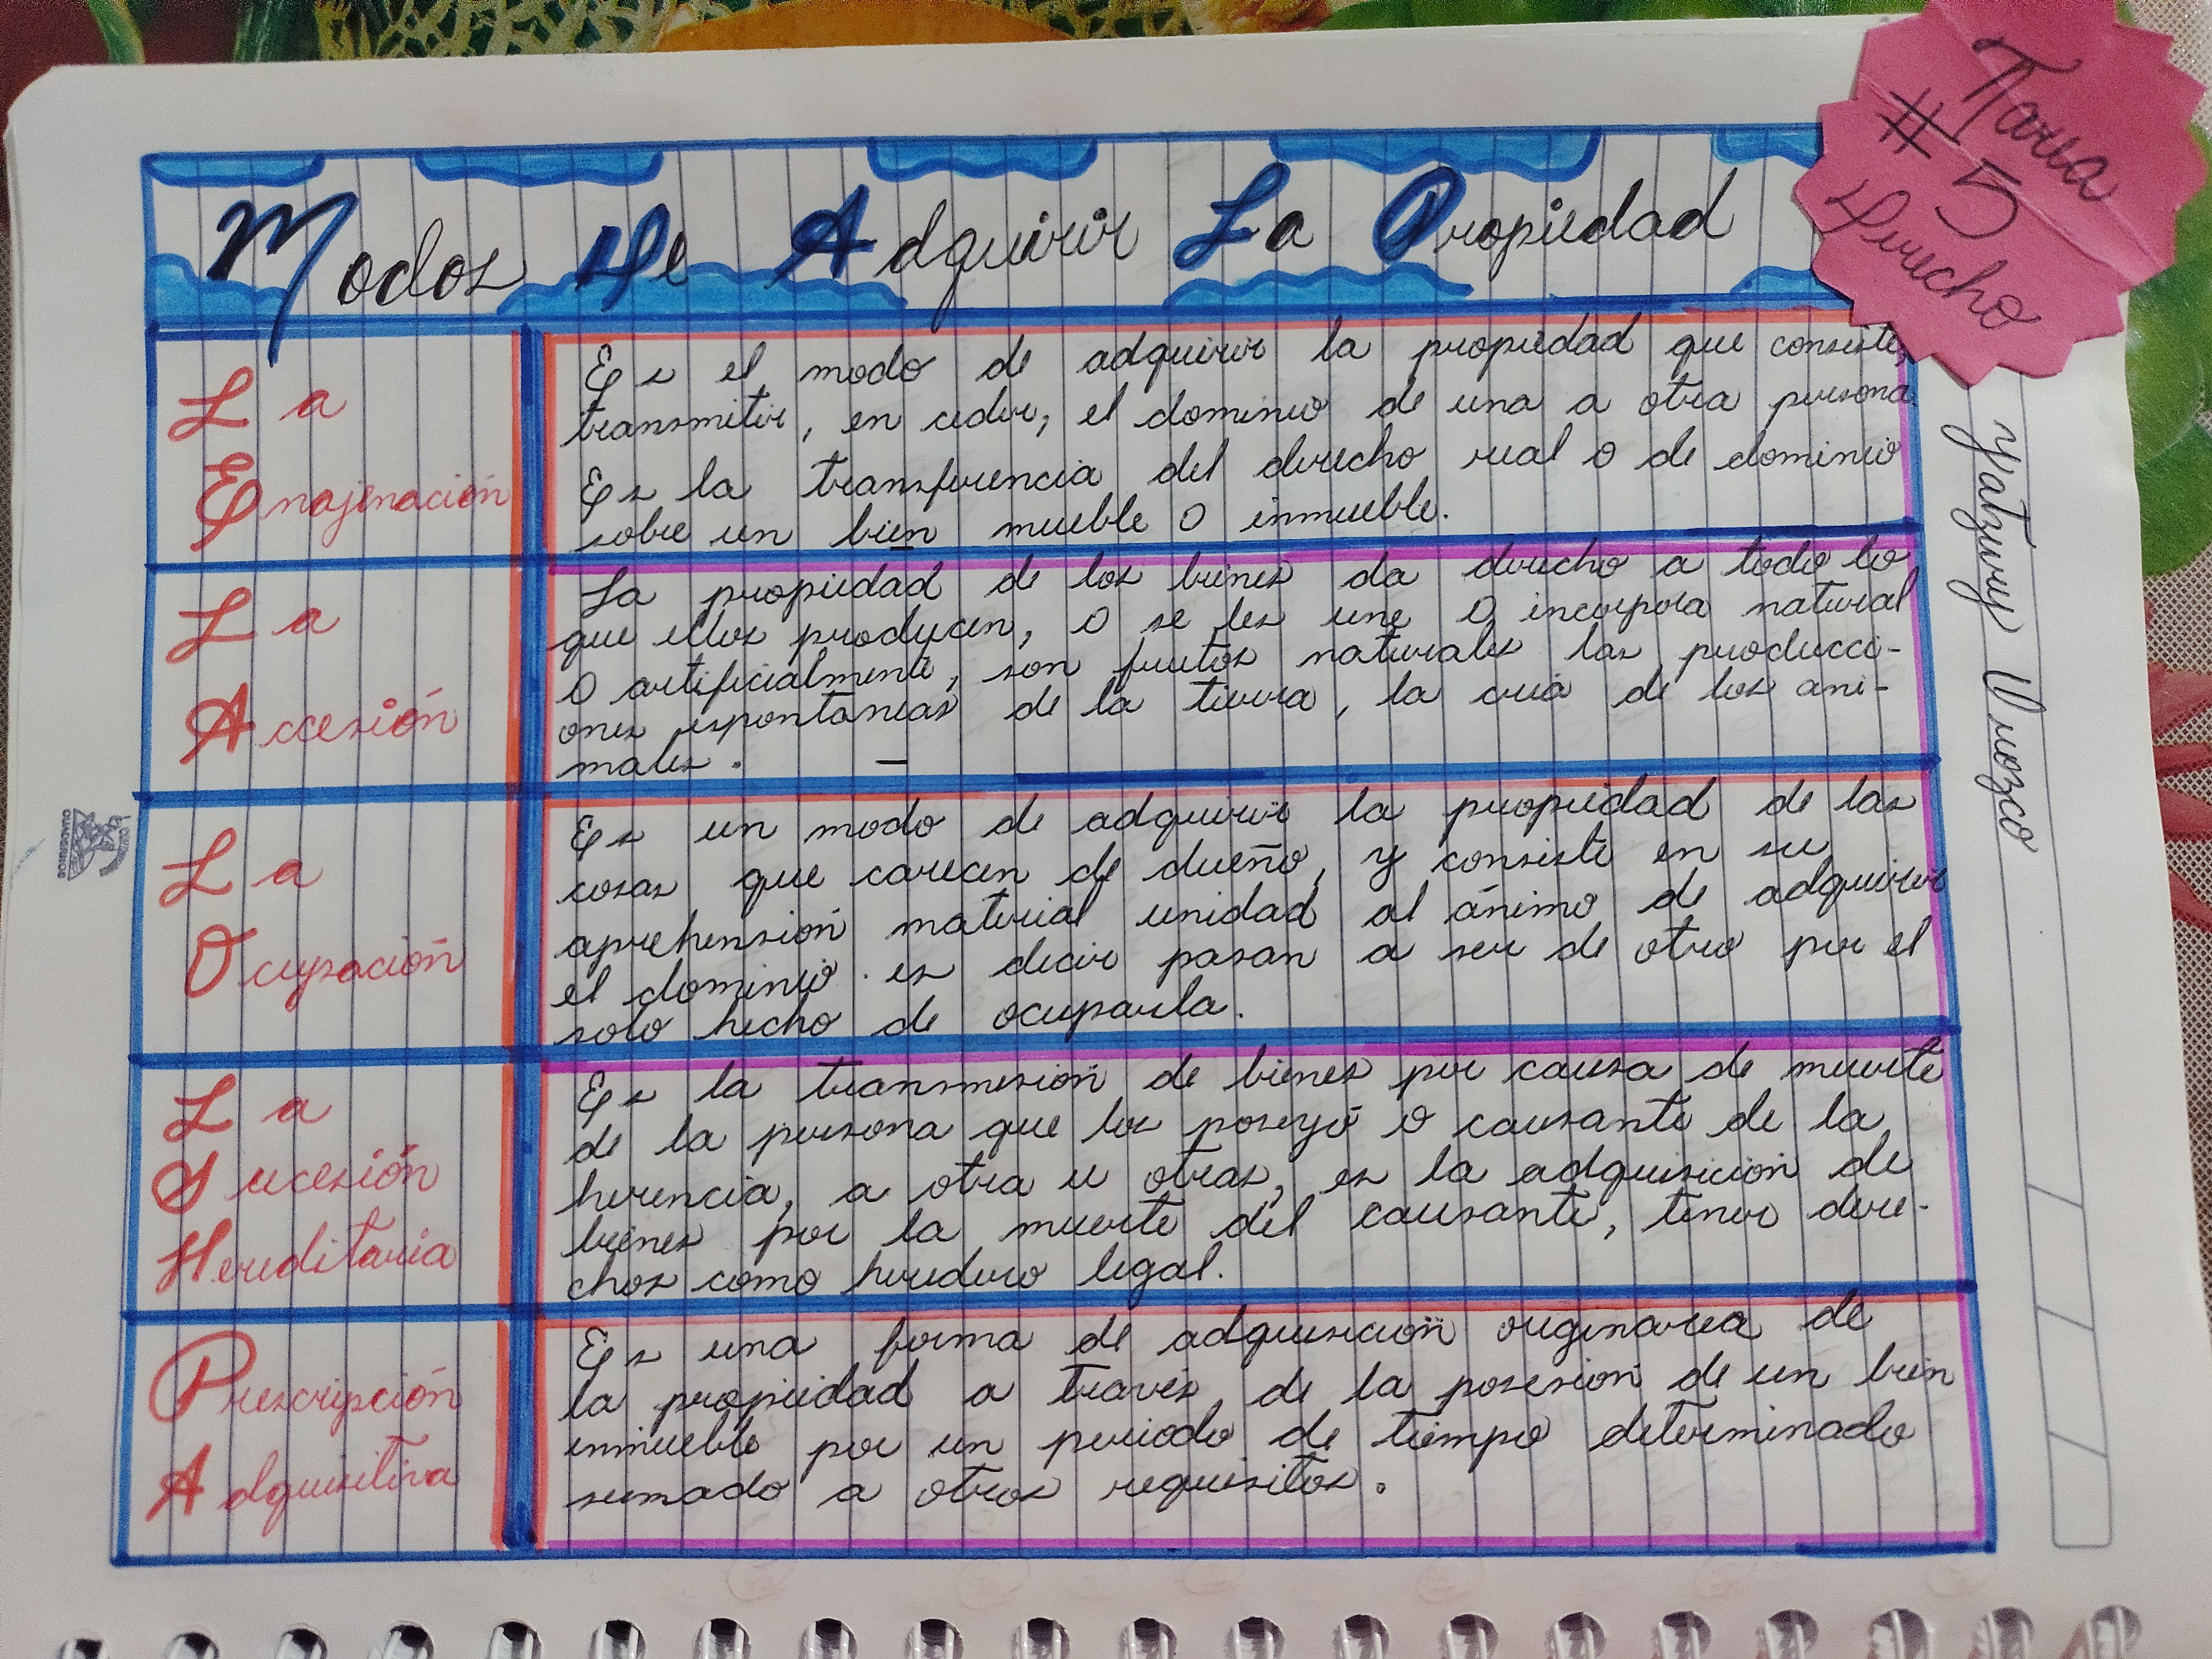 Modos De Adquirir La Propiedad
Tarea
# 5
Derecho
La
Enajenación
Es el modo de adquirir la propiedad que consiste,
transmitir, en ceder, el dominio de una a otra persona.
Es la transferencia del derecho real o de dominio
sobre un bien mueble o inmueble.
La
Accesión
La propiedad de los bienes da derecho a todo lo
que ellos producen, o se les une o incorpora natural
o artificialmente, son frutos naturales las producci-
ones espontaneas de la tierra, la cria de los ani-
males.
La
Ocupación
Es un modo de adquirir la propiedad de las
cosas que carecen de dueño, y consiste en su
aprehensión material unidad al ánimo de adquirir
el dominio. es decir pasan a ser de otro por el
solo hecho de ocuparla.
La
Sucesión
Hereditaria
Es la transmesion de bienes por causa de muerte
de la persona que los poseyó o causante de la
herencia, a otra u otras, es la adquisición de
bienes por la muerte del causante, tener dere-
chos como heredero legal.
Prescripción
Adquisitiva
Es una forma de adquisición originaria de
la propiedad a través de la posesion de un bien
inmueble por un periodo de tiempo determinado
sumado a otros requisitos.
Yatzury Orozco